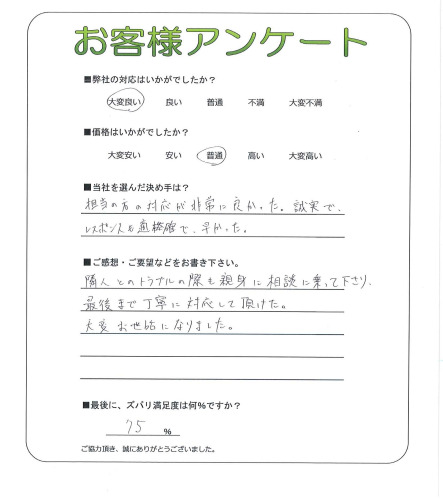 お客様アンケート
■弊社の対応はいかがでしたか?
大変良い 良い 普通 不満 大変不満
■価格はいかがでしたか?
大変安い 安い 普通 高い 大変高い
■当社を選んだ決め手は?
担当の方の対応が非常に良かった。誠実で、
レスポンスも適確で、早かった。
■ご感想・ご要望などをお書き下さい。
隣人とのトラブルの際も親身に相談に乗って下さり、
最後まで丁寧に対応して頂けた。
大変お世話になりました。
■最後に、ズバリ満足度は何%ですか?
75 %
ご協力頂き、誠にありがとうございました。